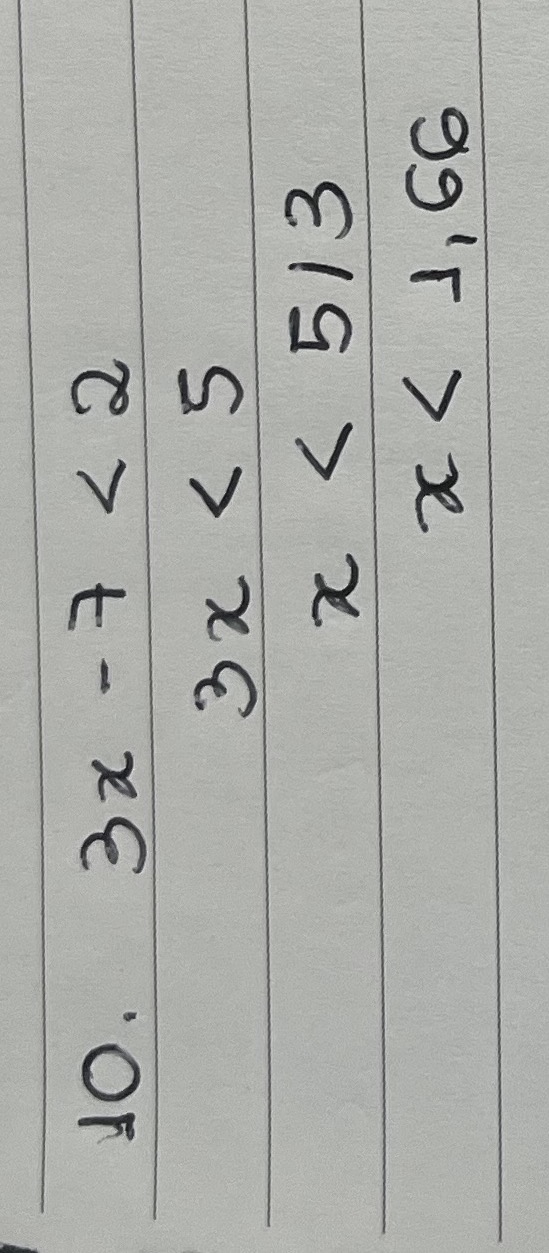 10. 3x - 7 < 2
3x < 5
x < 5/3
x < 1,66